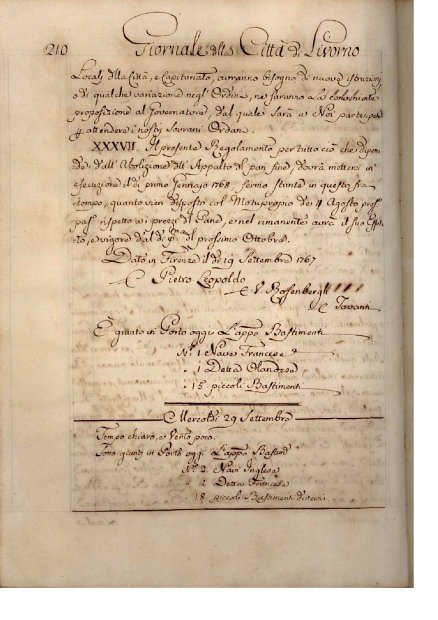 210 Giornale della Città di Livorno
Locali della Città, e Capitanato, avranno bisogno di nuove istruzioni,
o di qualche variazione negl'Ordini, ne faranno la
proposizione al Governatore, dal quale sarà a Noi partecipata
p attendere i nostri Sovrani Ordini.
XXXVII. Il presente Regolamento per tutto ciò che dipen-
de dall'Abolizione dell'Appalto del pan fine, dovrà mettersi in
esecuzione il dì primo Gennajo 1768, fermo stante in questo fra
tempo, quanto vien disposto col Motuproprio dei 4 Agosto pross.
pass. rispetto ai prezzi del Pane, e nel rimanente avrà il suo Effet-
to, e vigore dal dì p.mo del prossimo Ottobre.
Dato in Firenze il dì 19 Settembre 1767
Pietro Leopoldo
V. Rosenbergh
Tavanti
È giunto in Porto oggi L'appo Bastimenti
N.º 1 Nave Francese
" 1 Detta Olandese
" 15 piccoli Bastimenti
Mercoldì 29 Settembre
Tempo chiaro, e Vento poco.
Sono giunti in Porto oggi L'appo Bastim.
N.º 2. Navi Inglese
2 Dette Francese
18 piccoli Bastimenti diversi